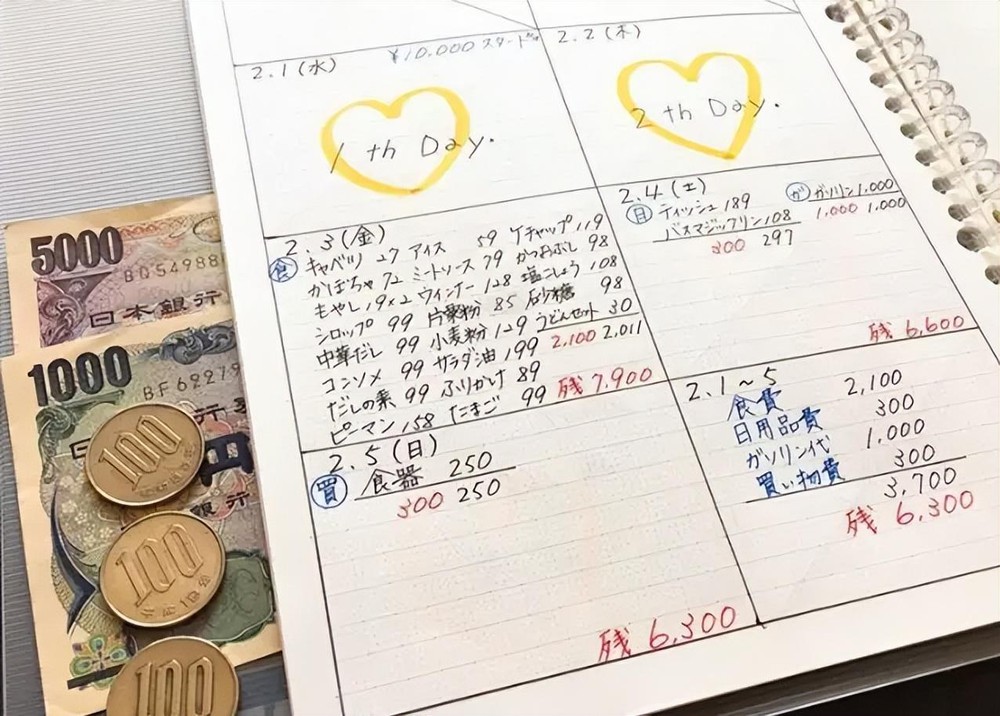 5000
BD54988
日本銀行
1000
BF69279
100
100
100
¥10,000 スタート
2.1(水)
1 th Day.
2.2(木)
2 th Day.
2.3(金)
食 キャベツ 27 アイス 59 ケチャップ 119
かぼちゃ 72 ミートソース 79 かつおぶし 98
もやし 19×2 ウィンナー 128 塩こしょう 108
シロップ 99 片栗粉 85 砂糖 98
中華だし 99 小麦粉 129 うどんセット 30
コンソメ 99 サラダ油 199 2,100 2,011
だしの素 99 ふりかけ 89
ピーマン 158 たまご 99 残 7,900
2.4(土)
日 ティッシュ 189
バスマジックリン 108
300 297
ガ ガソリン 1,000
1,000 1,000
残 6,600
2.5(日)
買 食器 250
300 250
残 6,300
2.1~5
食費 2,100
日用品費 300
ガソリン代 1,000
買い物費 300
3,700
残 6,300